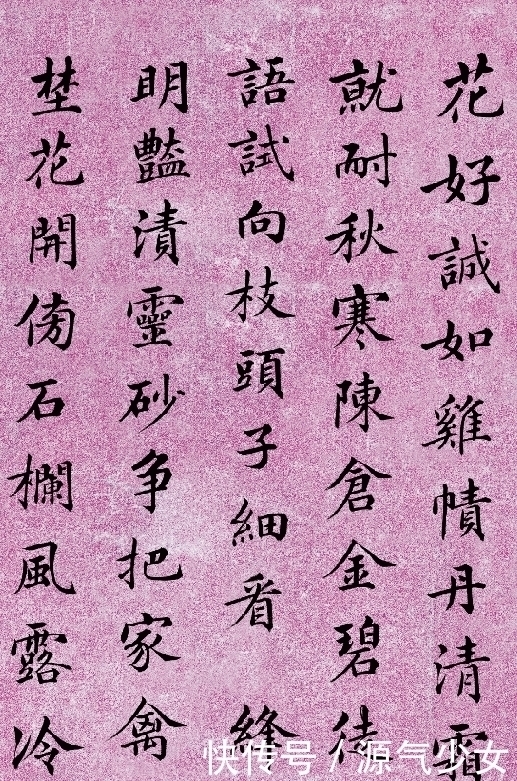 花好誠如雞幘丹清霜
就耐秋寒陳倉金碧徒
語試向枝頭子細看
明豔漬靈砂争把家禽
埜花開傍石欄風露冷
快传号 / 源气少女